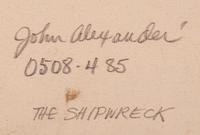 John Alexander
0508-485
THE SHIPWRECK